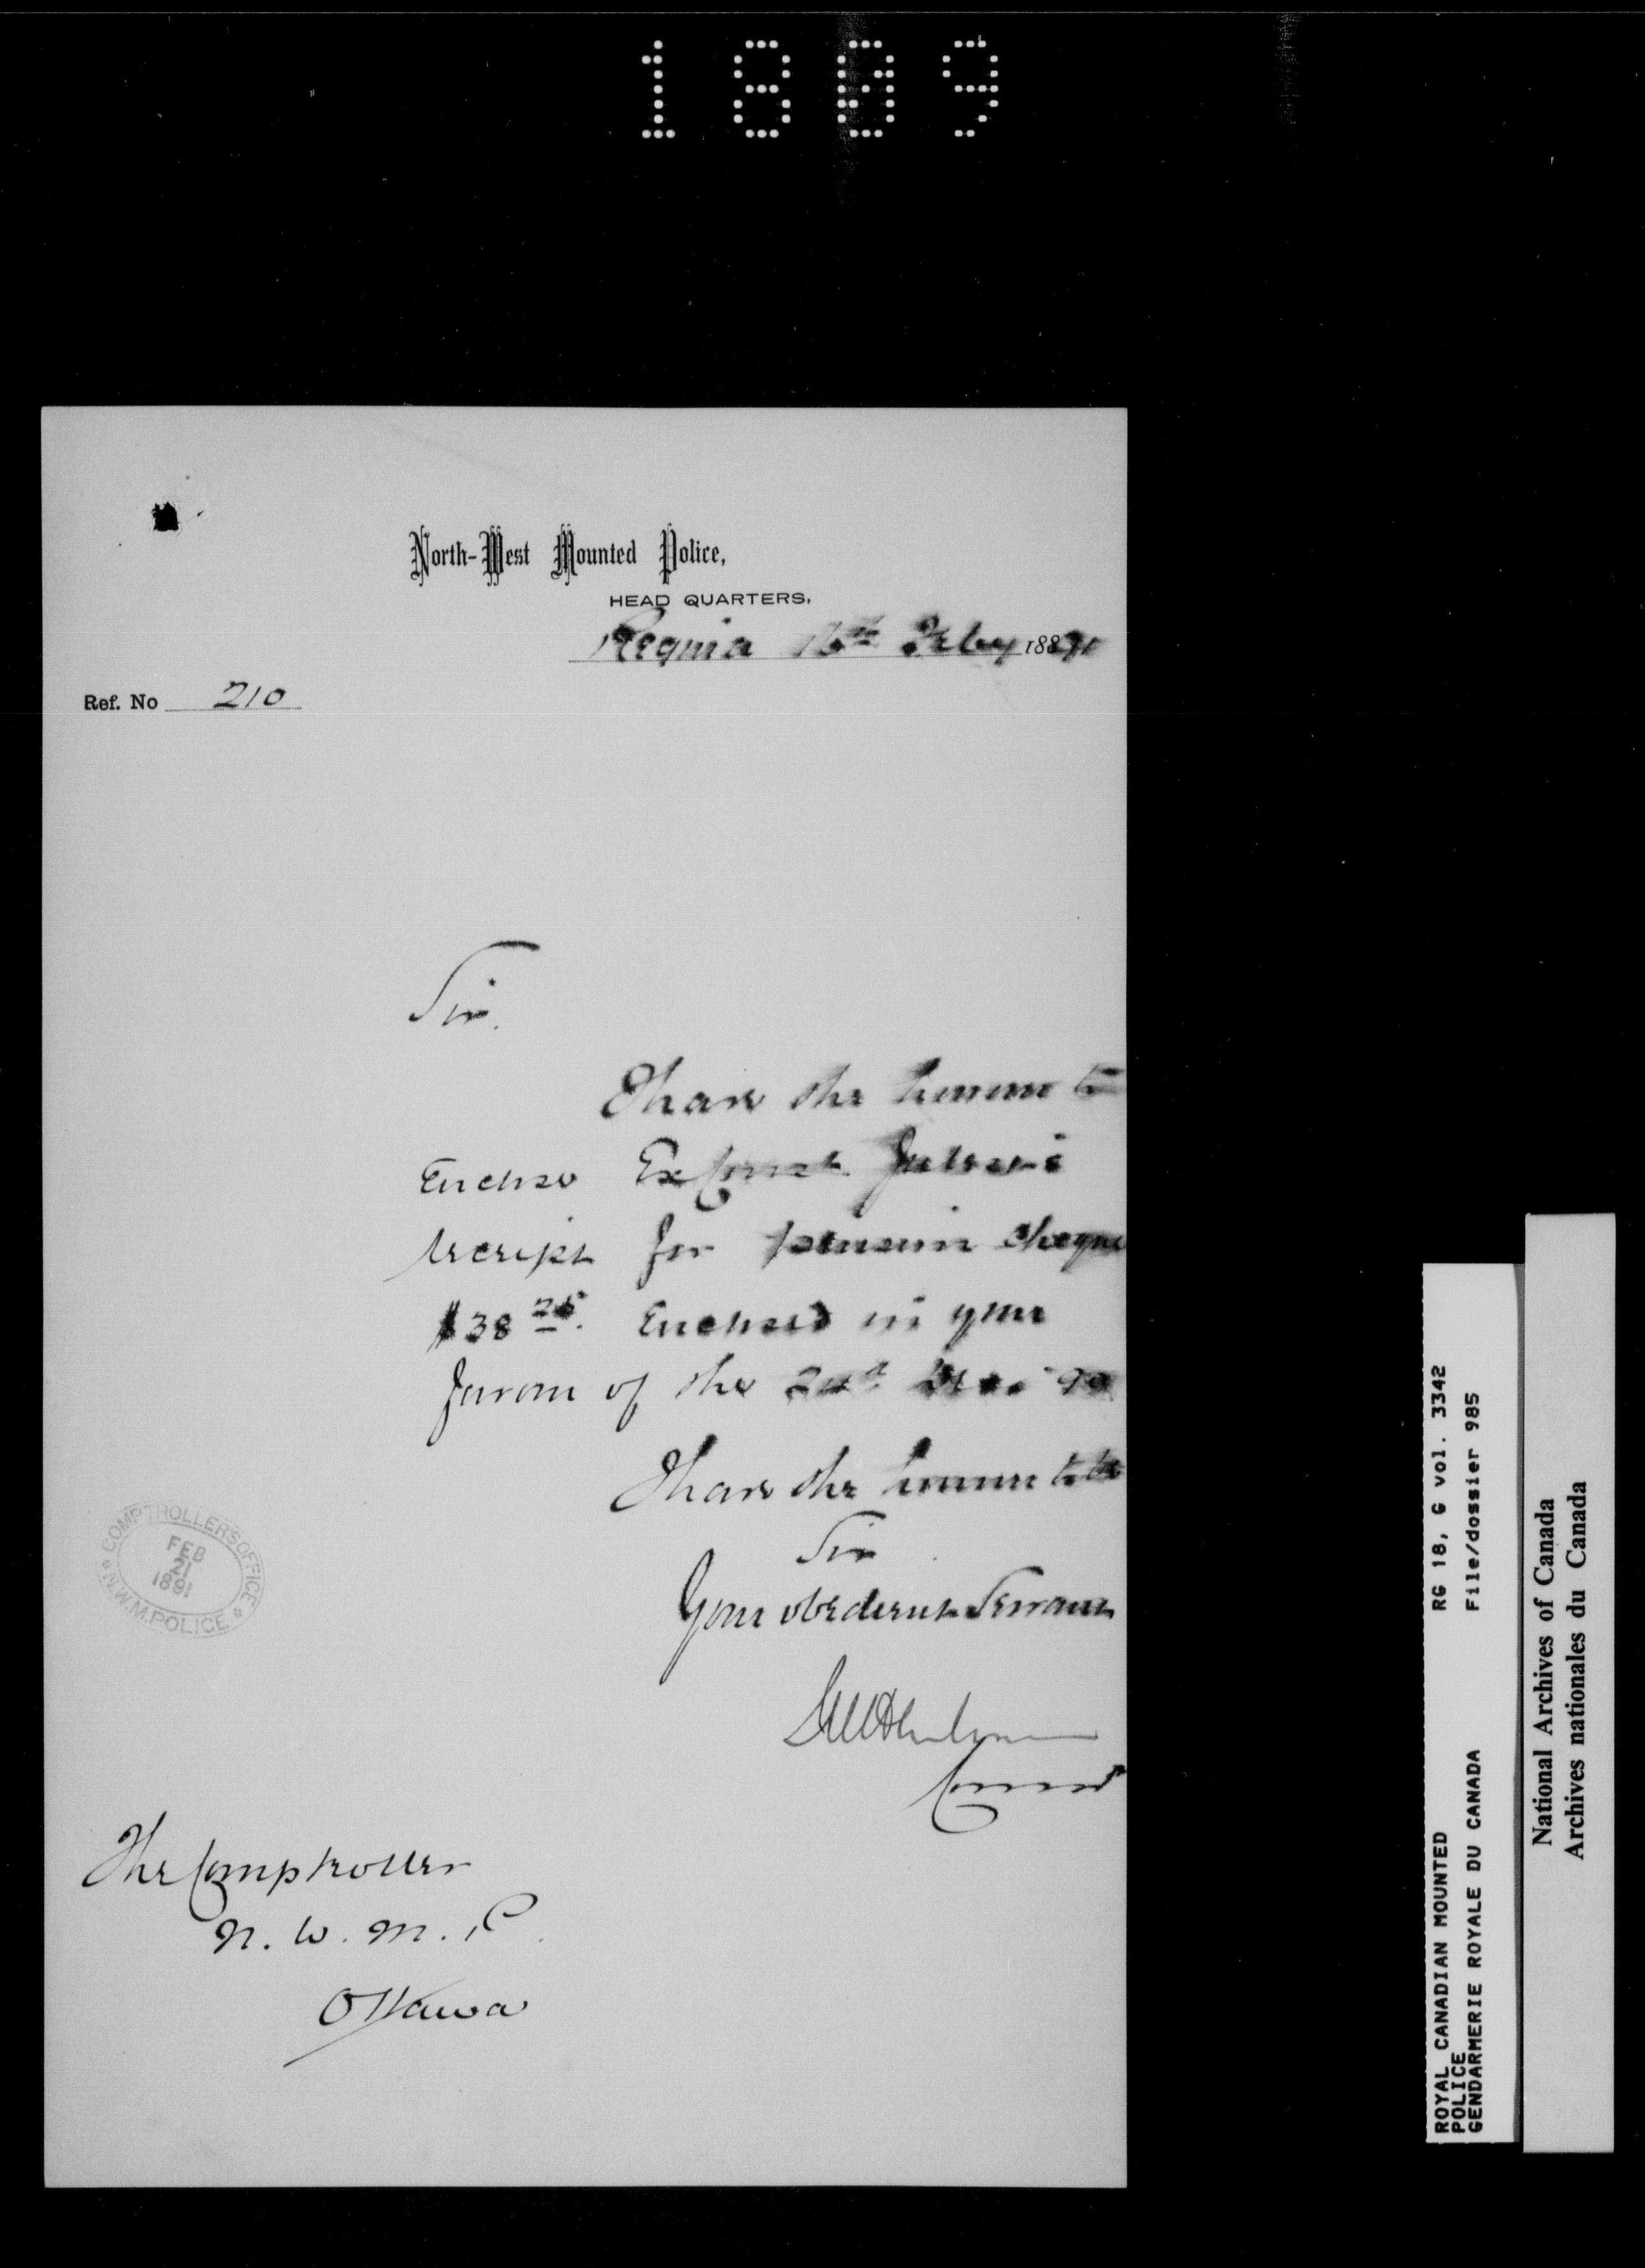 1809
North-West Mounted Police,
HEAD QUARTERS,
Regina 16th Feby 1891
Ref. No 210
Sir.
I have the honour to
Enclose Ex Const.
receipt for pension cheque
$38 25. Enclosed in your
favour of the 24th Dec. 90
I have the honour to be
Sir
Your obedient Servant
Commr
COMPTROLLERS OFFICE
FEB
21
1891
N.W.M.POLICE
The Comptroller
N. W. M. P.
Ottawa
ROYAL CANADIAN MOUNTED POLICE
GENDARMERIE ROYALE DU CANADA
RG 18, G vol. 3342
File/dossier 985
National Archives of Canada
Archives nationales du Canada